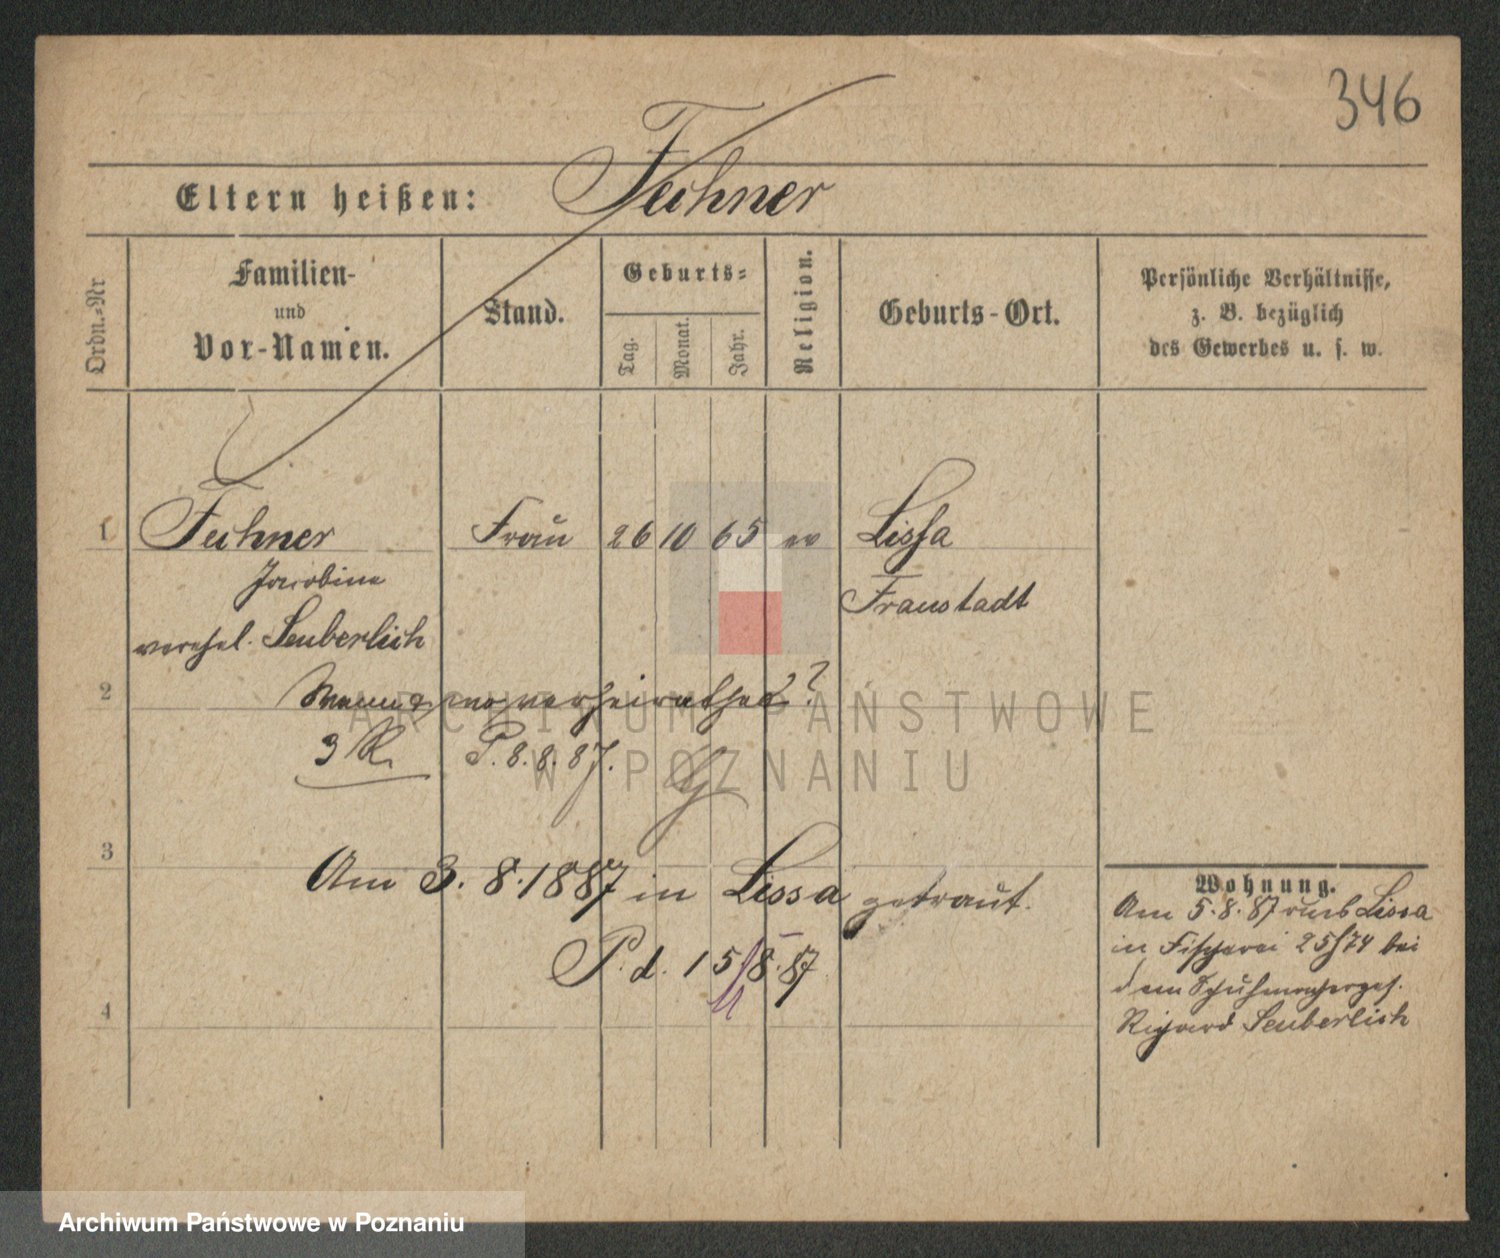 346
Eltern heißen: Fechner
Ordn.-Nr
Familien-
und
Vor-Namen.
Stand.
Geburts-
Tag.
Monat.
Jahr.
Religion.
Geburts-Ort.
Persönliche Verhältnisse,
z. B. bezüglich
des Gewerbes u. s. w.
1 Fechner Frau 26 10 65 ev Lissa
Jacobine Fraustadt
verehel. Seuberlich
2 Wann & wo verheirathet?
3 R. P. 8. 8. 87.
3
Am 3. 8. 1887 in Lissa getraut.
P. d. 15/8. 87
4
Wohnung.
Am 5. 8. 87 aus Lissa
in Fischerei 25/74 bei
dem Schuhmacherges.
Richard Seuberlich
ARCHIWUM PAŃSTWOWE
W POZNANIU
Archiwum Państwowe w Poznaniu